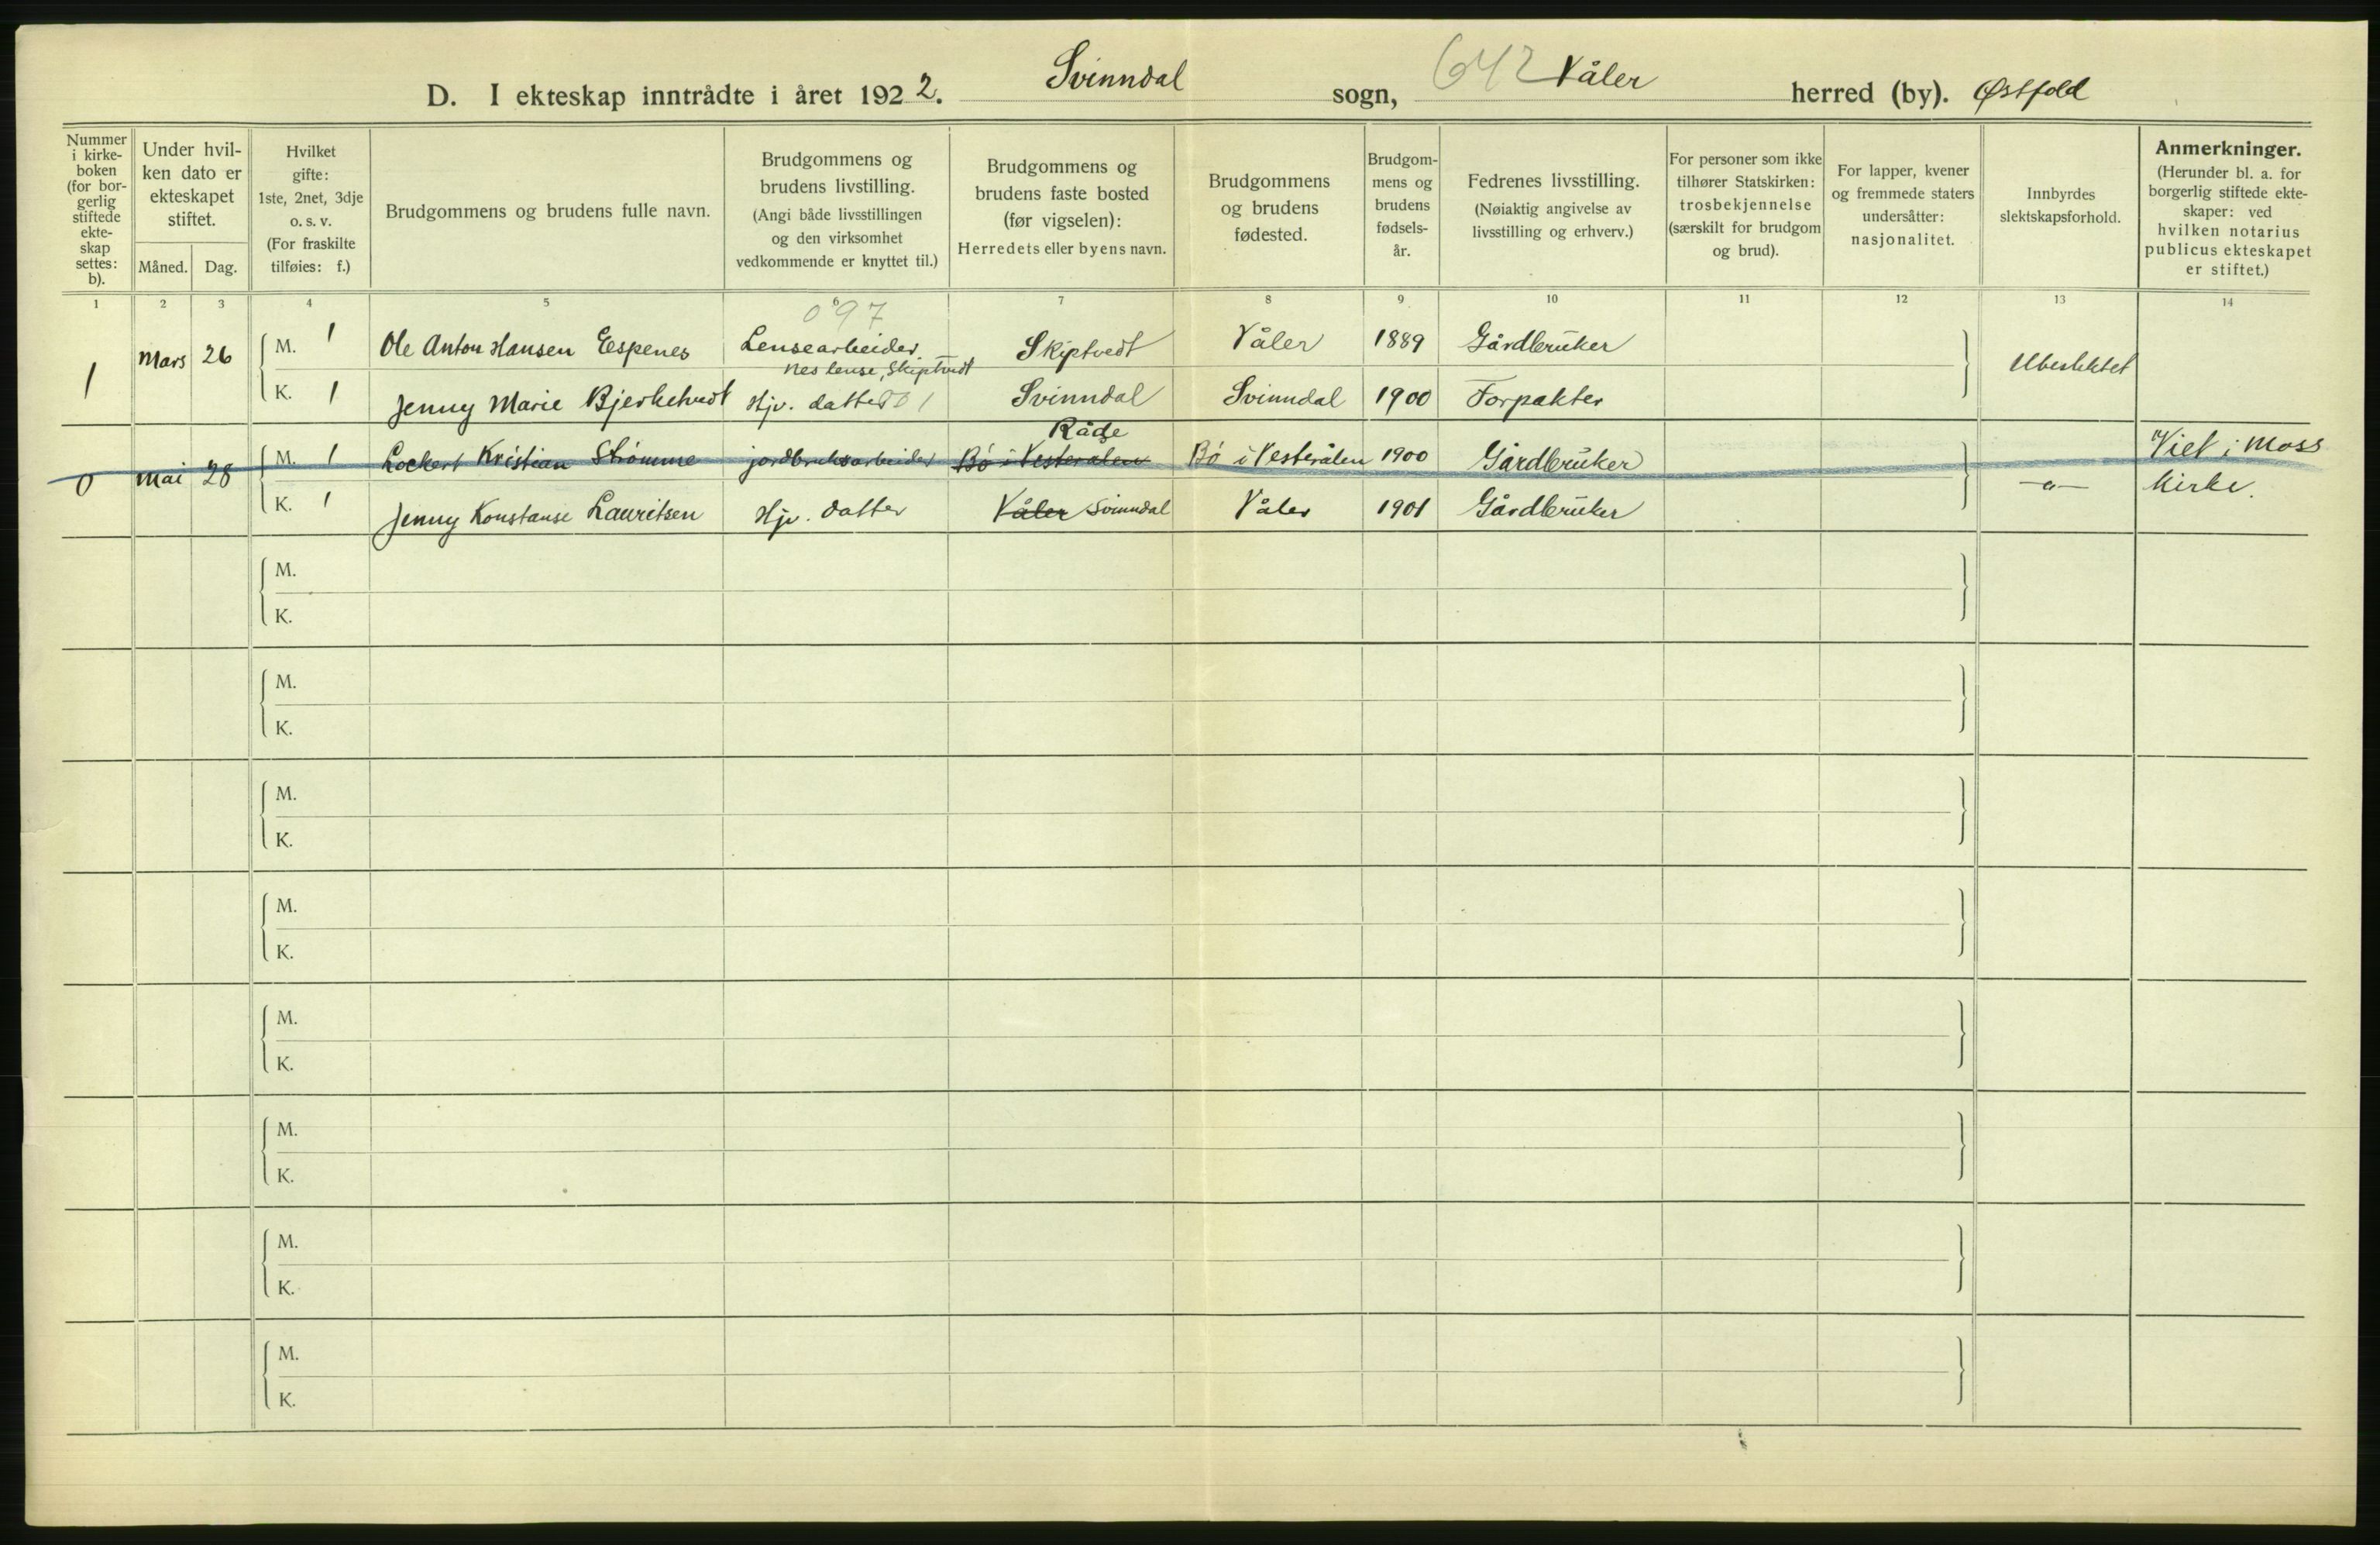 D. I ekteskap inntrådte i året 1922. Svinndal sogn, 642 Våler herred (by). Østfold
Nummer i kirke-boken (for bor-gerlig stiftede ekte-skap settes: b).
Under hvil-ken dato er ekteskapet stiftet.
Måned. Dag.
Hvilket gifte: 1ste, 2net, 3dje o. s. v. (For fraskilte tilføies: f.)
Brudgommens og brudens fulle navn.
Brudgommens og brudens livstilling. (Angi både livsstillingen og den virksomhet vedkommende er knyttet til.)
Brudgommens og brudens faste bosted (før vigselen): Herredets eller byens navn.
Brudgommens og brudens fødested.
Brudgom-mens og brudens fødsels-år.
Fedrenes livsstilling. (Nøiaktig angivelse av livsstilling og erhverv.)
For personer som ikke tilhører Statskirken: trosbekjennelse (særskilt for brudgom og brud).
For lapper, kvener og fremmede staters undersåtter: nasjonalitet.
Innbyrdes slektskapsforhold.
Anmerkninger. (Herunder bl. a. for borgerlig stiftede ekte-skaper: ved hvilken notarius publicus ekteskapet er stiftet.)
1 2 3 4 5 6 7 8 9 10 11 12 13 14
097
1 Mars 26 M. 1 Ole Anton Hansen Espenes Lensearbeider Nes lense, Skiptvedt Skiptvedt Våler 1889 Gårdbruker Ubeslektet
K. 1 Jenny Marie Bjerkehvedt Hjv. datter Svinndal Svinndal 1900 Forpakter
Råde
0 Mai 28 M. 1 Lockert Kristian Strømme jordbruksarbeider Bø i Vesterålen Bø i Vesterålen 1900 Gårdbruker —"— Viet i Moss
K. 1 Jenny Konstanse Lauritsen Hjv. datter Våler Svinndal Våler 1901 Gårdbruker kirke.
M.
K.
M.
K.
M.
K.
M.
K.
M.
K.
M.
K.
M.
K.
M.
K.